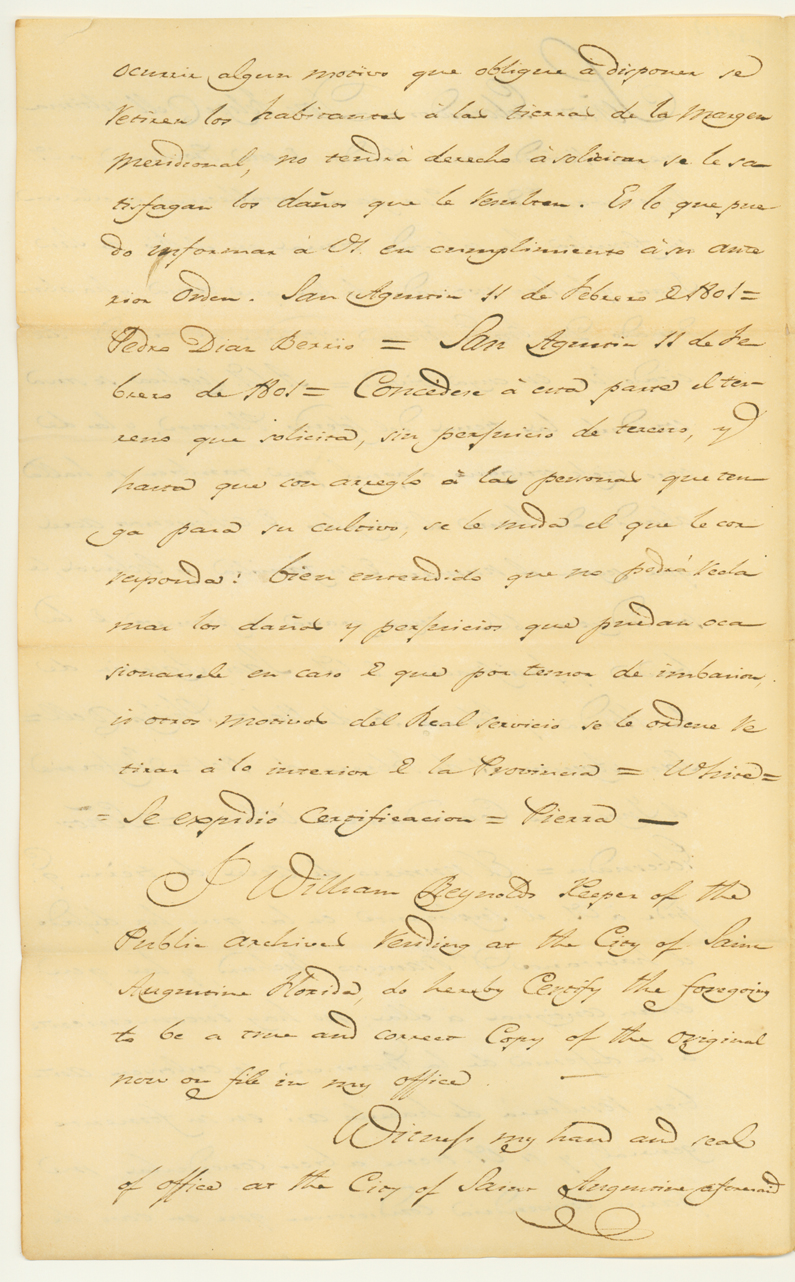 ocurrir algun motivo que obligue à disponer se
retiren los habitantes à las tierras de la margen
meridional, no tendrà derecho à solicitar se le sa-
tisfagan los daños que le resulten. Es lo que pue-
do informar à VS. en cumplimiento à su ante
rior orden. San Agustin 11 de Febrero de 1801=
Pedro Diaz Berrio = San Agustin 11 de Fe-
brero de 1801= Concedese à esta parte el ter-
reno que solicita, sin perjuicio de tercero, y
hasta que con arreglo à las personas que ten-
ga para su cultivo, se le mida el que le cor
responda: bien entendido que no podrà recla
mar los daños y perjuicios que puedan oca-
sionarsele en caso de que por temor de imbasion,
ù otros motivos del Real servicio se le ordene re
tirar à lo interior de la Provincia = White=
= Se expidió Certificacion = Pierra —
I William Reynolds Keeper of the
Public archives residing at the City of Saint
Augustine Florida, do hereby Certify the foregoing
to be a true and correct Copy of the original
now on file in my office.
Witness my hand and seal
of office at the City of Saint Augustine aforesaid